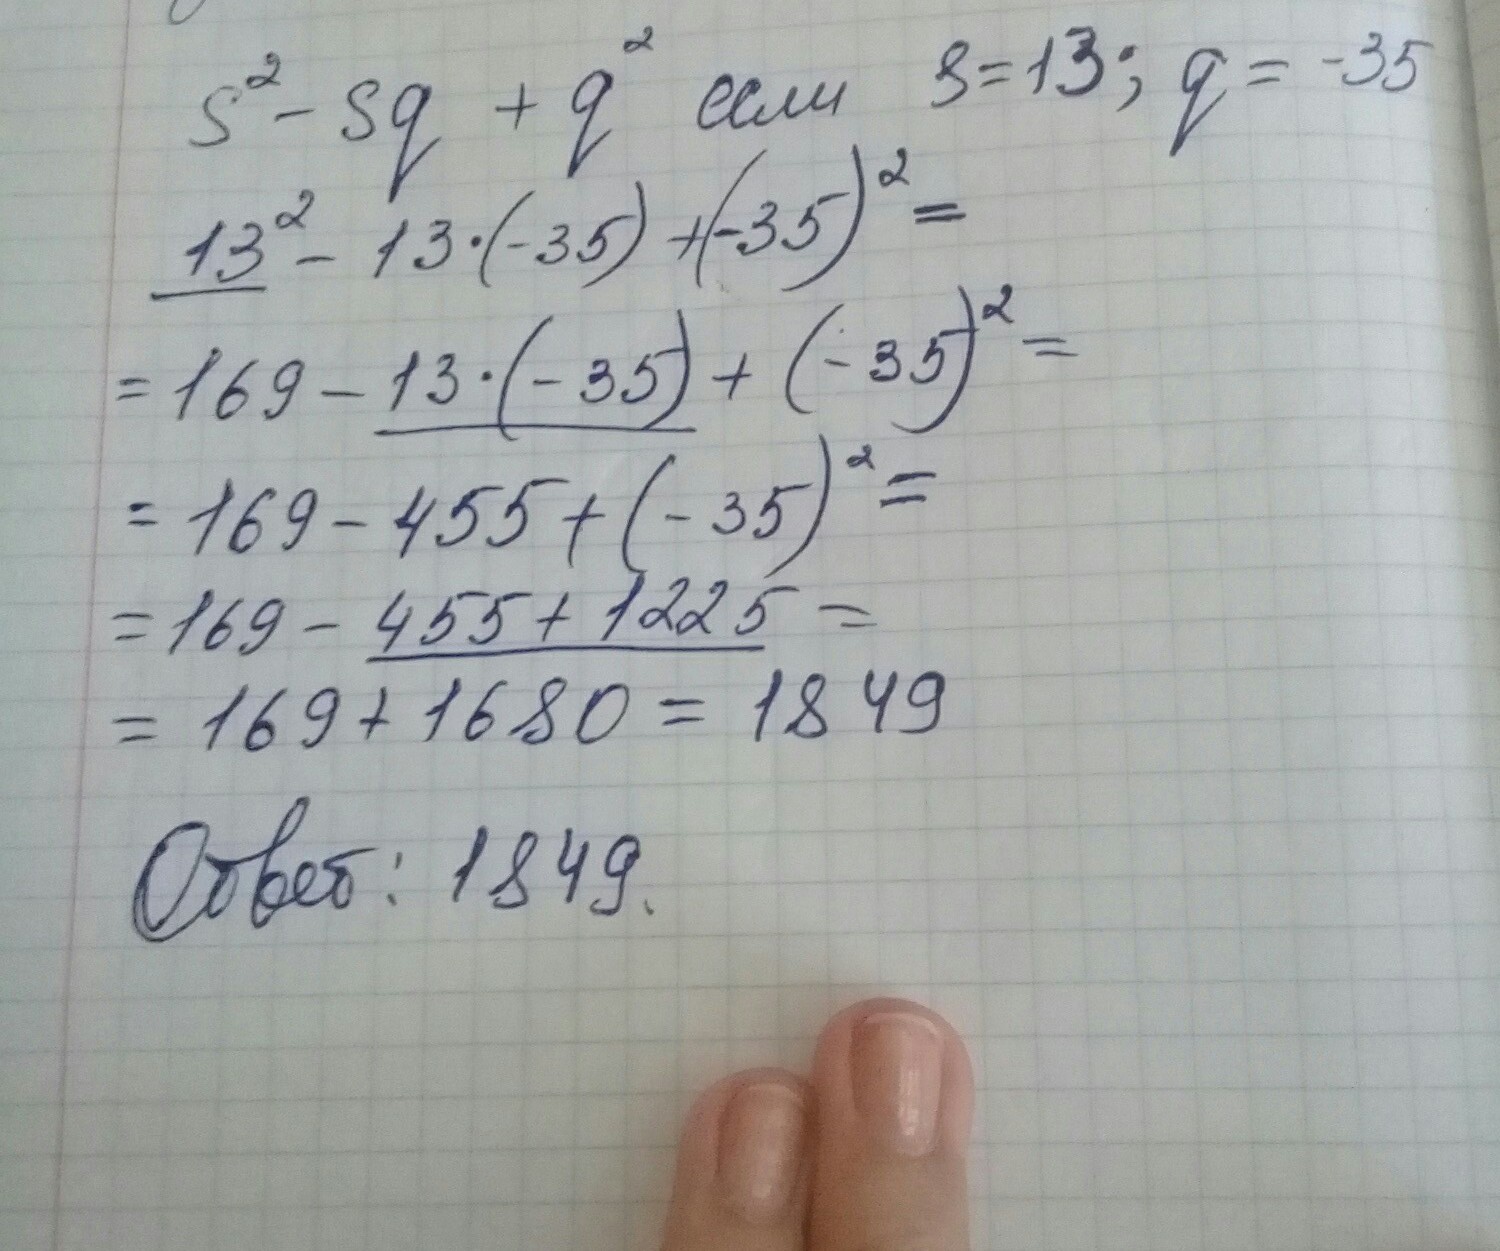 s² - sq + q² если s = 13; q = -35
13² - 13·(-35) + (-35)² =
= 169 - 13·(-35) + (-35)² =
= 169 - 455 + (-35)² =
= 169 - 455 + 1225 =
= 169 + 1680 = 1849
Ответ: 1849.